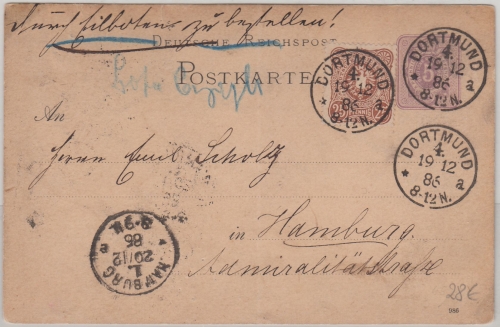 durch Eilboten zu bestellen!
DEUTSCHE REICHSPOST
POSTKARTE
DORTMUND
4.
19 12
86 a
* 8-12 N.
DORTMUND
4.
19 12
86 a
* 8-12 N.
25 PFENNIG
5
An
Herrn Emil Scholtz
DORTMUND
4.
19 12
86 a
* 8-12 N.
in Hamburg.
Admiralitätstraße
HAMBURG
1.
20/12
86
28€